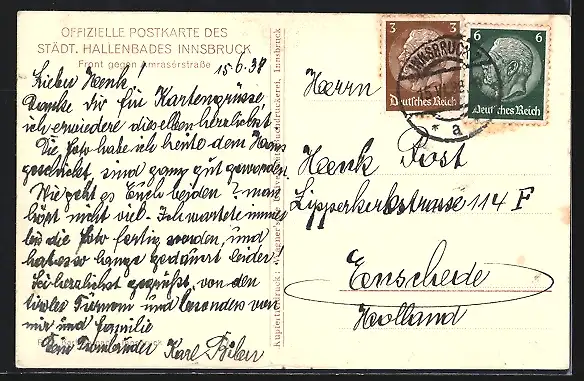 OFFIZIELLE POSTKARTE DES
STÄDT. HALLENBADES INNSBRUCK
Front gegen Amraserstraße
15.6.38
Lieber Henk!
Danke Dir für Kartengrüsse,
ich erwiedere dieselben herzlichst
Die Foto habe ich heute dem Hans
geschickt, sind ganz gut geworden.
Wie geht es Euch beiden? man
hört nicht viel. Ich wartete immer
bis die Foto fertig wurden, und
hat es so lange gedauert leider!
Sei herzlichst gegrüßt von den
Tiroler und besonders von
mir und Familie
Dein Karl
Kupfertiefdruck: Wagner'sche Univ. Buchdruckerei, Innsbruck
3 3
Deutsches Reich
6 6
Deutsches Reich
INNSBRUCK
* a
Herrn
Henk Post
Lipperkerkstrasse 114 F
Enschede
Holland